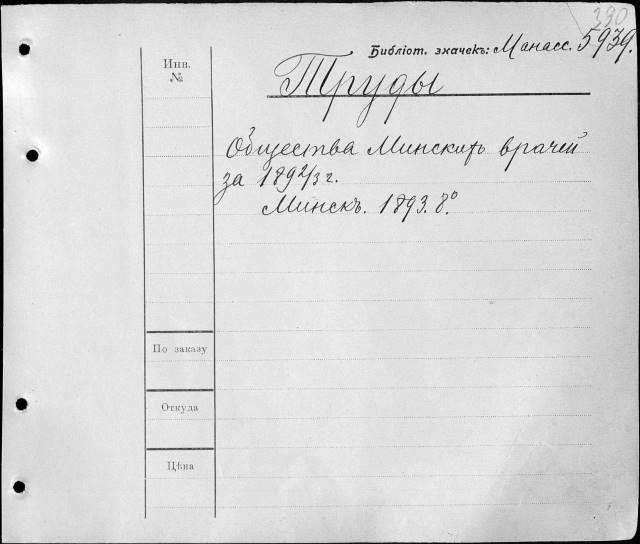 390
Библіот. значекъ: Манасс. 5939.
Инв.
№
Труды
Общества Минскихъ врачей
за 1892/3 г.
Минскъ. 1893. 8°.
По заказу
Откуда
Цѣна